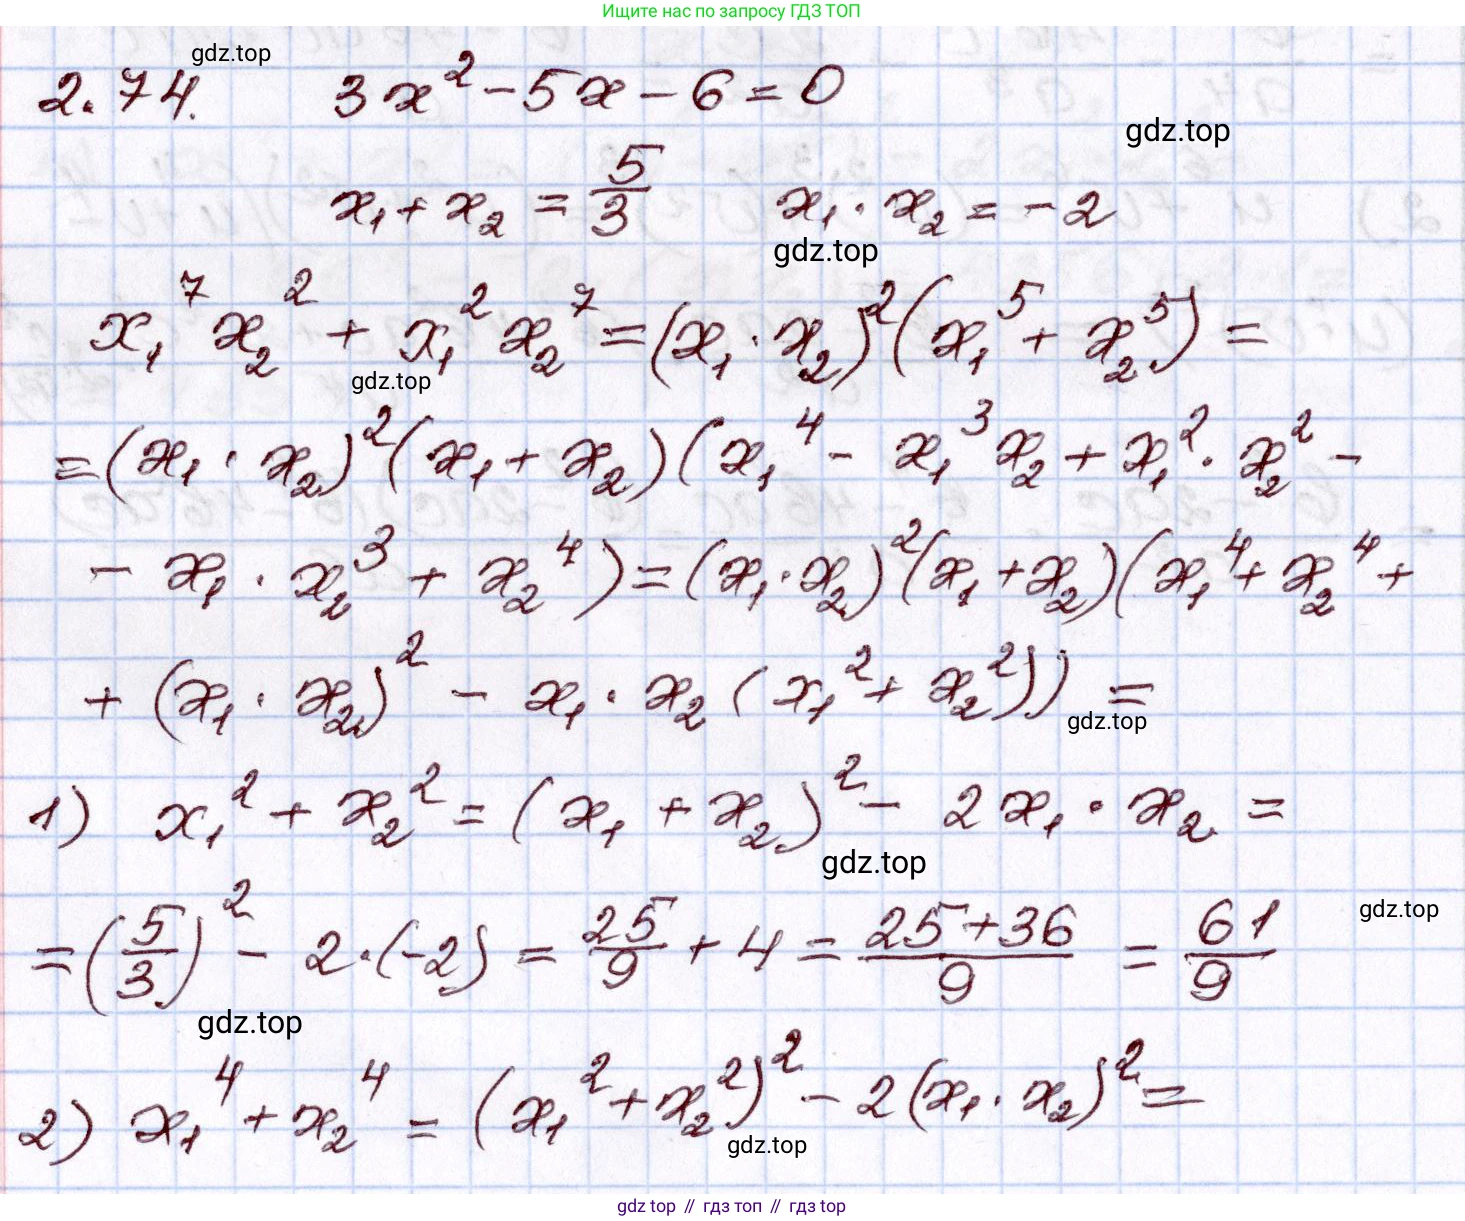 Ищите нас по запросу ГДЗ ТОП
gdz.top
2.74. 3x² - 5x - 6 = 0
gdz.top
x₁ + x₂ = 5/3 x₁ · x₂ = -2
gdz.top
x₁⁷x₂² + x₁²x₂⁷ = (x₁ · x₂)²(x₁⁵ + x₂⁵) =
gdz.top
= (x₁ · x₂)²(x₁ + x₂)(x₁⁴ - x₁³x₂ + x₁² · x₂² -
- x₁ · x₂³ + x₂⁴) = (x₁ · x₂)²(x₁ + x₂)(x₁⁴ + x₂⁴ +
+ (x₁ · x₂)² - x₁ · x₂(x₁² + x₂²)) =
gdz.top
1) x₁² + x₂² = (x₁ + x₂)² - 2x₁ · x₂ =
gdz.top
= (5/3)² - 2 · (-2) = 25/9 + 4 = (25+36)/9 = 61/9
gdz.top
gdz.top
2) x₁⁴ + x₂⁴ = (x₁² + x₂²)² - 2(x₁ · x₂)² =
gdz.top
gdz top // гдз топ // gdz top